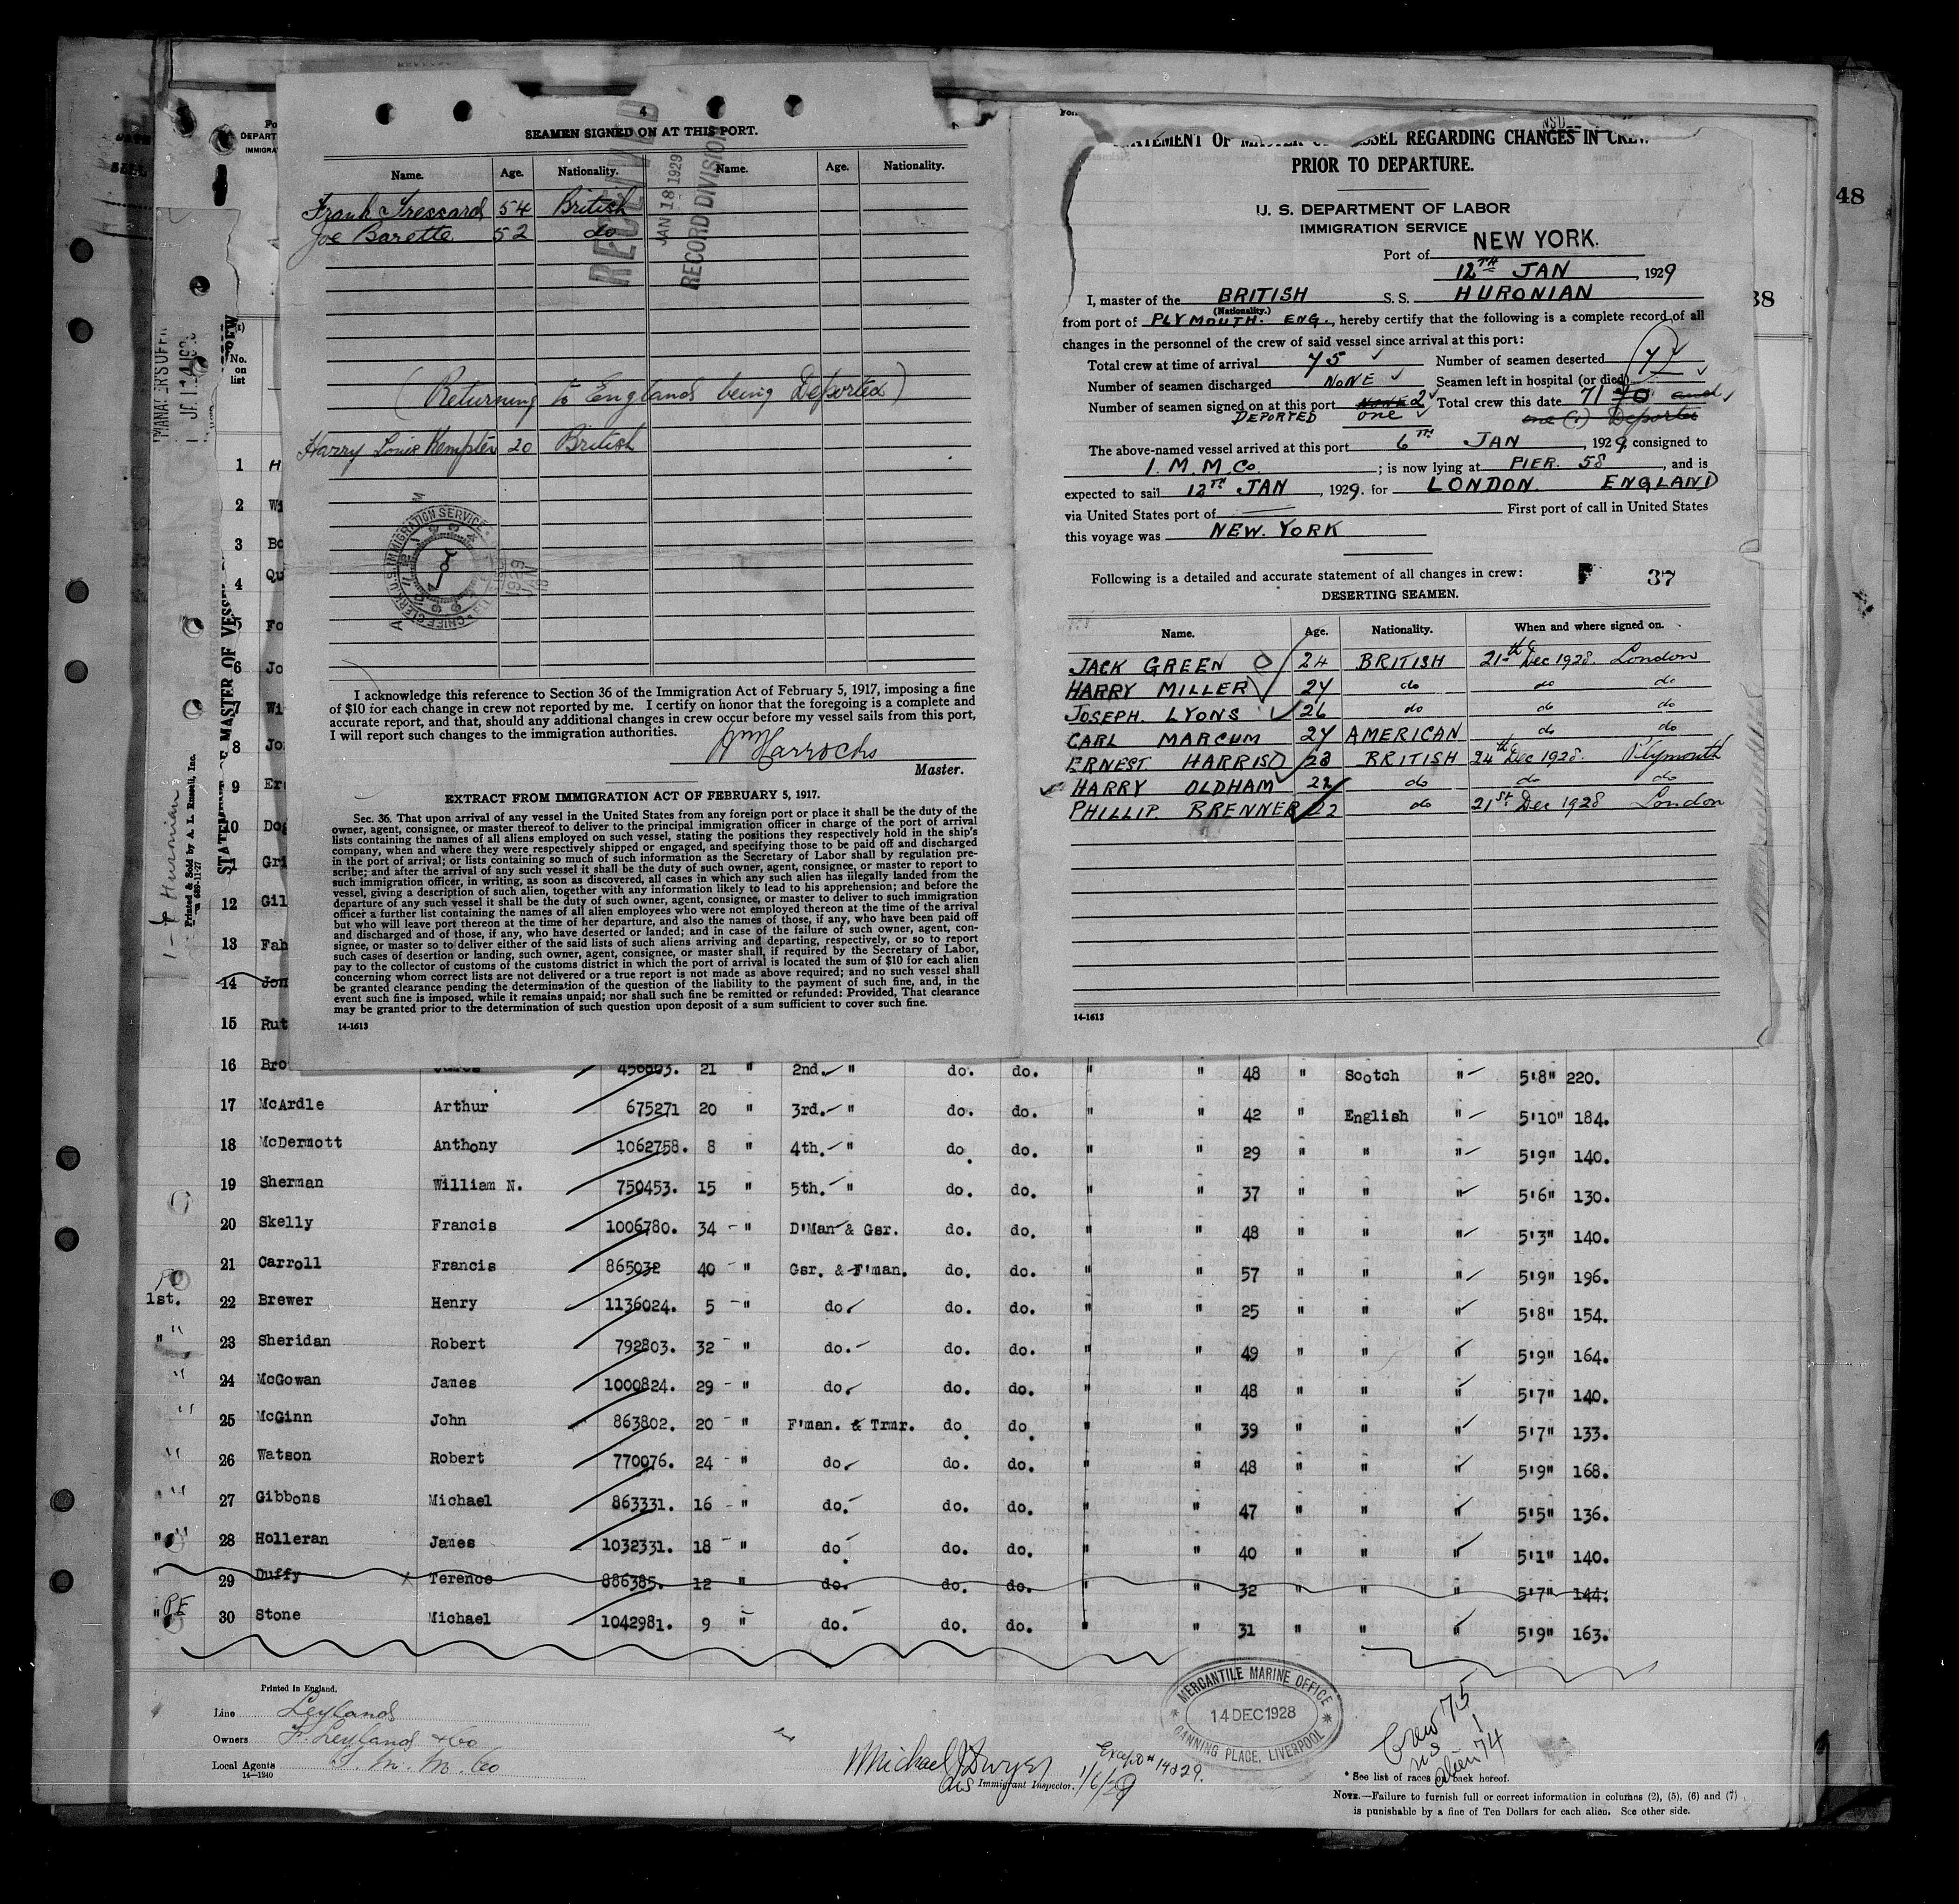 4
SEAMEN SIGNED ON AT THIS PORT.
Name. Age. Nationality. Name. Age. Nationality.
Frank Tressard 54 British
Joe Barette 52 do
RECEIVED
JAN 18 1929
RECORD DIVISION
(Returning to England being Deported)
Harry Louis Kempter 20 British
CHIEF CLERK U.S. IMMIGRATION SERVICE
1929
JAN
18
I acknowledge this reference to Section 36 of the Immigration Act of February 5, 1917, imposing a fine
of $10 for each change in crew not reported by me. I certify on honor that the foregoing is a complete and
accurate report, and that, should any additional changes in crew occur before my vessel sails from this port,
I will report such changes to the immigration authorities.
Master.
EXTRACT FROM IMMIGRATION ACT OF FEBRUARY 5, 1917.
Sec. 36. That upon arrival of any vessel in the United States from any foreign port or place it shall be the duty of the
owner, agent, consignee, or master thereof to deliver to the principal immigration officer in charge of the port of arrival
lists containing the names of all aliens employed on such vessel, stating the positions they respectively hold in the ship's
company, when and where they were respectively shipped or engaged, and specifying those to be paid off and discharged
in the port of arrival; or lists containing so much of such information as the Secretary of Labor shall by regulation pre-
scribe; and after the arrival of any such vessel it shall be the duty of such owner, agent, consignee, or master to report to
such immigration officer, in writing, as soon as discovered, all cases in which any such alien has illegally landed from the
vessel, giving a description of such alien, together with any information likely to lead to his apprehension; and before the
departure of any such vessel it shall be the duty of such owner, agent, consignee, or master to deliver to such immigration
officer a further list containing the names of all alien employees who were not employed thereon at the time of the arrival
but who will leave port thereon at the time of her departure, and also the names of those, if any, who have been paid off
and discharged and of those, if any, who have deserted or landed; and in case of the failure of such owner, agent, con-
signee, or master so to deliver either of the said lists of such aliens arriving and departing, respectively, or so to report
such cases of desertion or landing, such owner, agent, consignee, or master shall, if required by the Secretary of Labor,
pay to the collector of customs of the customs district in which the port of arrival is located the sum of $10 for each alien
concerning whom correct lists are not delivered or a true report is not made as above required; and no such vessel shall
be granted clearance pending the determination of the question of the liability to the payment of such fine, and, in the
event such fine is imposed, while it remains unpaid; nor shall such fine be remitted or refunded: Provided, That clearance
may be granted prior to the determination of such question upon deposit of a sum sufficient to cover such fine.
14-1613
STATEMENT OF MASTER OF VESSEL REGARDING CHANGES IN CREW
PRIOR TO DEPARTURE.
U. S. DEPARTMENT OF LABOR
IMMIGRATION SERVICE
Port of NEW YORK.
12TH JAN, 1929
I, master of the BRITISH S. S. HURONIAN
(Nationality.)
from port of PLYMOUTH. ENG., hereby certify that the following is a complete record of all
changes in the personnel of the crew of said vessel since arrival at this port:
Total crew at time of arrival 75 Number of seamen deserted 7
Number of seamen discharged NONE Seamen left in hospital (or died)
Number of seamen signed on at this port NONE 2 Total crew this date 71 70 and
DEPORTED one one (1) Deporter
The above-named vessel arrived at this port 6TH JAN, 1929, consigned to
I. M. M. Co.; is now lying at PIER. 58, and is
expected to sail 12TH JAN, 1929. for LONDON. ENGLAND
via United States port of First port of call in United States
this voyage was NEW. YORK
Following is a detailed and accurate statement of all changes in crew: 37
DESERTING SEAMEN.
Name. Age. Nationality. When and where signed on.
JACK GREEN 24 BRITISH 21st Dec 1928. London
HARRY MILLER 27 do do do
JOSEPH. LYONS 26 do do do
CARL MARCUM 27 AMERICAN do do
ERNEST HARRIS 28 BRITISH 24th Dec 1928. Plymouth
HARRY OLDHAM 22 do do do
PHILLIP BRENNER 22 do 21st Dec 1928 London
14-1613
48
38
STATEMENT OF MASTER OF VESSEL
Printed & Sold by A. L. Russell, Inc.
Huronian
No.
on
list
1 H
2 Wi
3 Bo
4 Qu
5 Fo
6 Jo
7 Wi
8 Jo
9 Er
10 Dog
11 Gri
12 Gil
13 Fah
14 Jon
15 Rut
16 Bro James 456803. 21 " 2nd. " do. do. " " 48 " Scotch " 5'8" 220.
17 McArdle Arthur 675271 20 " 3rd. " do. do. " " 42 " English " 5'10" 184.
18 McDermott Anthony 1062758. 8 " 4th. " do. do. " " 29 " " " 5'9" 140.
19 Sherman William N. 750453. 15 " 5th. " do. do. " " 37 " " " 5'6" 130.
20 Skelly Francis 1006780. 34 " D'Man & Gsr. do. do. " " 48 " " " 5'3" 140.
21 Carroll Francis 865032 40 " Gsr. & F'man. do. do. " " 57 " " " 5'9" 196.
1st. 22 Brewer Henry 1136024. 5 " do. do. do. " " 25 " " " 5'8" 154.
" 23 Sheridan Robert 792803. 32 " do. do. do. " " 49 " " " 5'9" 164.
" 24 McGowan James 1000824. 29 " do. do. do. " " 48 " " " 5'7" 140.
" 25 McGinn John 863802. 20 " F'man. & Trmr. do. do. " " 39 " " " 5'7" 133.
" 26 Watson Robert 770076. 24 " do. do. do. " " 48 " " " 5'9" 168.
" 27 Gibbons Michael 863331. 16 " do. do. do. " " 47 " " " 5'5" 136.
" 28 Holleran James 1032331. 18 " do. do. do. " " 40 " " " 5'1" 140.
" 29 Duffy Terence 886385. 12 " do. do. do. " " 32 " " " 5'7" 144.
" 30 Stone Michael 1042981. 9 " do. do. do. " " 31 " " " 5'9" 163.
Printed in England.
Line Leyland
Owners F. Leyland & Co
Local Agents I. M. M. Co
14—1240
MERCANTILE MARINE OFFICE
14 DEC 1928
CANNING PLACE, LIVERPOOL
Michael J Dwyer
Immigrant Inspector. 1/6/29
Crew 75
us 1
alien 74
* See list of races on back hereof.
NOTE.—Failure to furnish full or correct information in columns (2), (5), (6) and (7)
is punishable by a fine of Ten Dollars for each alien. See other side.